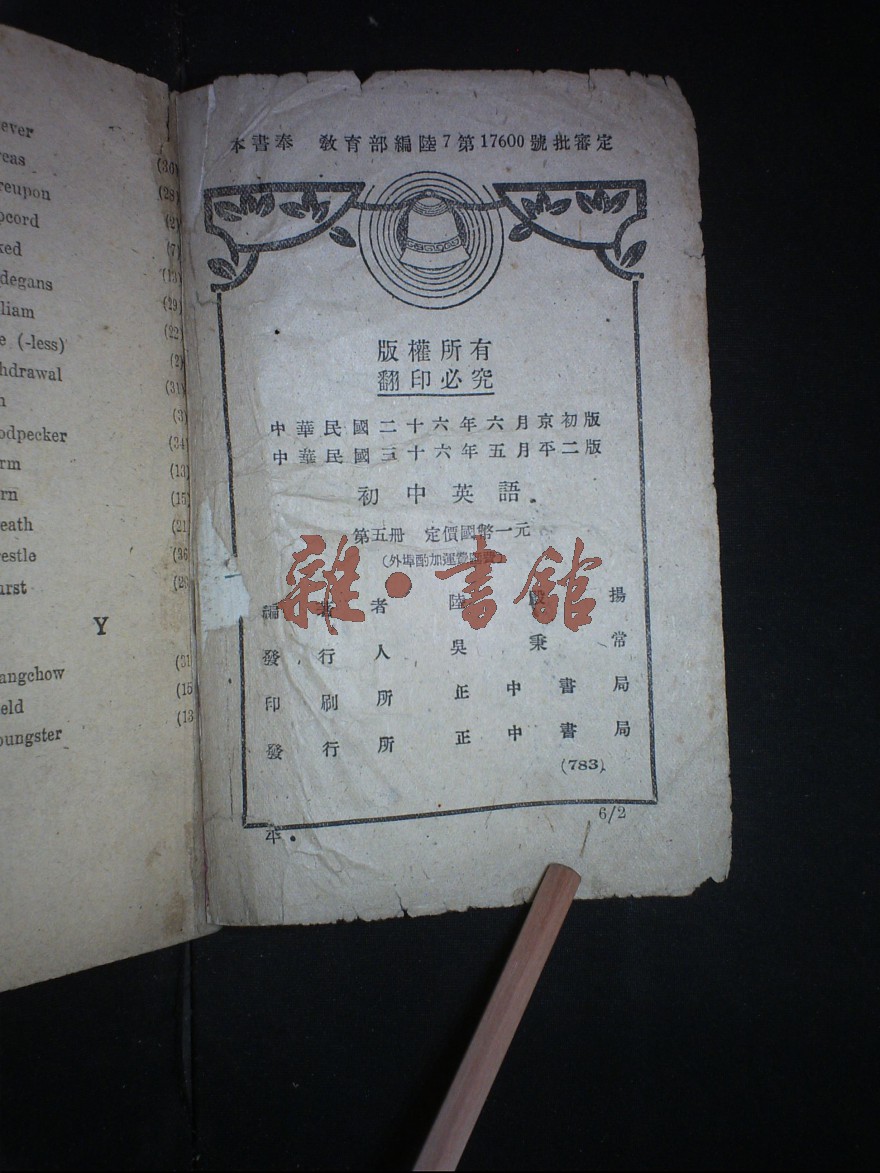 ever
reas (36)
reupon (28)
pcord (2)
ked (7)
degans (13)
liam (29)
e (-less) (22
hdrawal (2)
n (31)
odpecker (3)
rm (34)
rn (13)
eath (15)
restle (21)
urst (36)
Y
angchow (31)
eld (15
oungster (13
本書奉 教育部編陸7第17600號批審定
版權所有
翻印必究
中華民國二十六年六月京初版
中華民國三十六年五月平二版
初中英語
第五冊 定價國幣一元
(外埠酌加運費
編著者 陸 揚
發行人 吳秉常
印刷所 正中書局
發行所 正中書局
(783)
6/2
平.
雜·書館